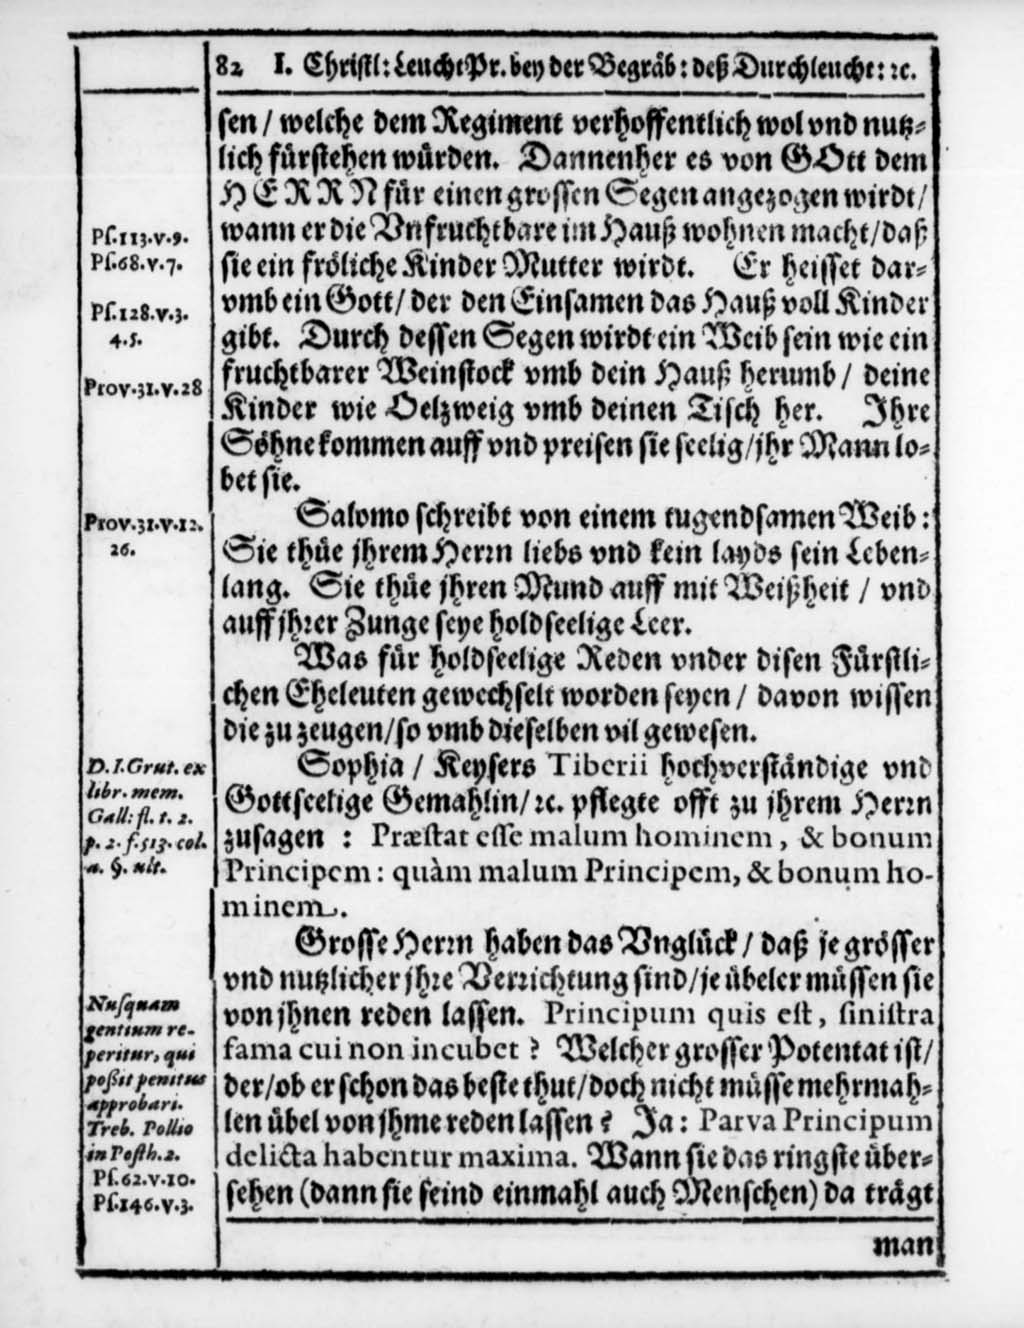 82 I. Christl: LeuchtPr. bey der Begräb: deß Durchleucht: ꝛc.
sen / welche dem Regiment verhoffentlich wol vnd nutz-
lich fürstehen würden. Dannenher es von GOtt dem
HERRN für einen grossen Segen angezogen wirdt /
wann er die Vnfruchtbare im Hauß wohnen macht / daß
sie ein fröliche Kinder Mutter wirdt. Er heisset dar-
vmb ein Gott / der den Einsamen das Hauß voll Kinder
gibt. Durch dessen Segen wirdt ein Weib sein wie ein
fruchtbarer Weinstock vmb dein Hauß herumb / deine
Kinder wie Oelzweig vmb deinen Tisch her. Jhre
Söhne kommen auff vnd preisen sie seelig / jhr Mann lo-
bet sie.
Salomo schreibt von einem tugendsamen Weib:
Sie thüe jhrem Herrn liebs vnd kein layds sein Leben-
lang. Sie thüe jhren Mund auff mit Weißheit / vnd
auff jhrer Zunge seye holdseelige Leer.
Was für holdseelige Reden vnder disen Fürstli-
chen Eheleuten gewechselt worden seyen / davon wissen
die zu zeugen / so vmb dieselben vil gewesen.
Sophia / Keysers Tiberii hochverständige vnd
Gottseelige Gemahlin / ꝛc. pflegte offt zu jhrem Herrn
zusagen : Præstat esse malum hominem, & bonum
Principem: quàm malum Principem, & bonum ho-
minem.
Grosse Herrn haben das Vnglück / daß je grösser
vnd nutzlicher jhre Verrichtung sind / je übeler müssen sie
von jhnen reden lassen. Principum quis est, sinistra
fama cui non incubet ? Welcher grosser Potentat ist /
der / ob er schon das beste thut / doch nicht müsse mehrmah-
len übel von jhme reden lassen? Ja: Parva Principum
delicta habentur maxima. Wann sie das ringste über-
sehen (dann sie seind einmahl auch Menschen) da trägt
man
Ps.113.v.9.
Ps.68.v.7.
Ps.128.v.3.
4.5.
Prov.31.v.28
Prov.31.v.12.
26.
D.I.Grut. ex
libr. mem.
Gall: fl. t. 2.
p. 2. f.513. col.
a. §. ult.
Nusquam
gentium re-
peritur, qui
poßit penitus
approbari.
Treb. Pollio
in Posth.2.
Ps.62.v.10.
Ps.146.v.3.